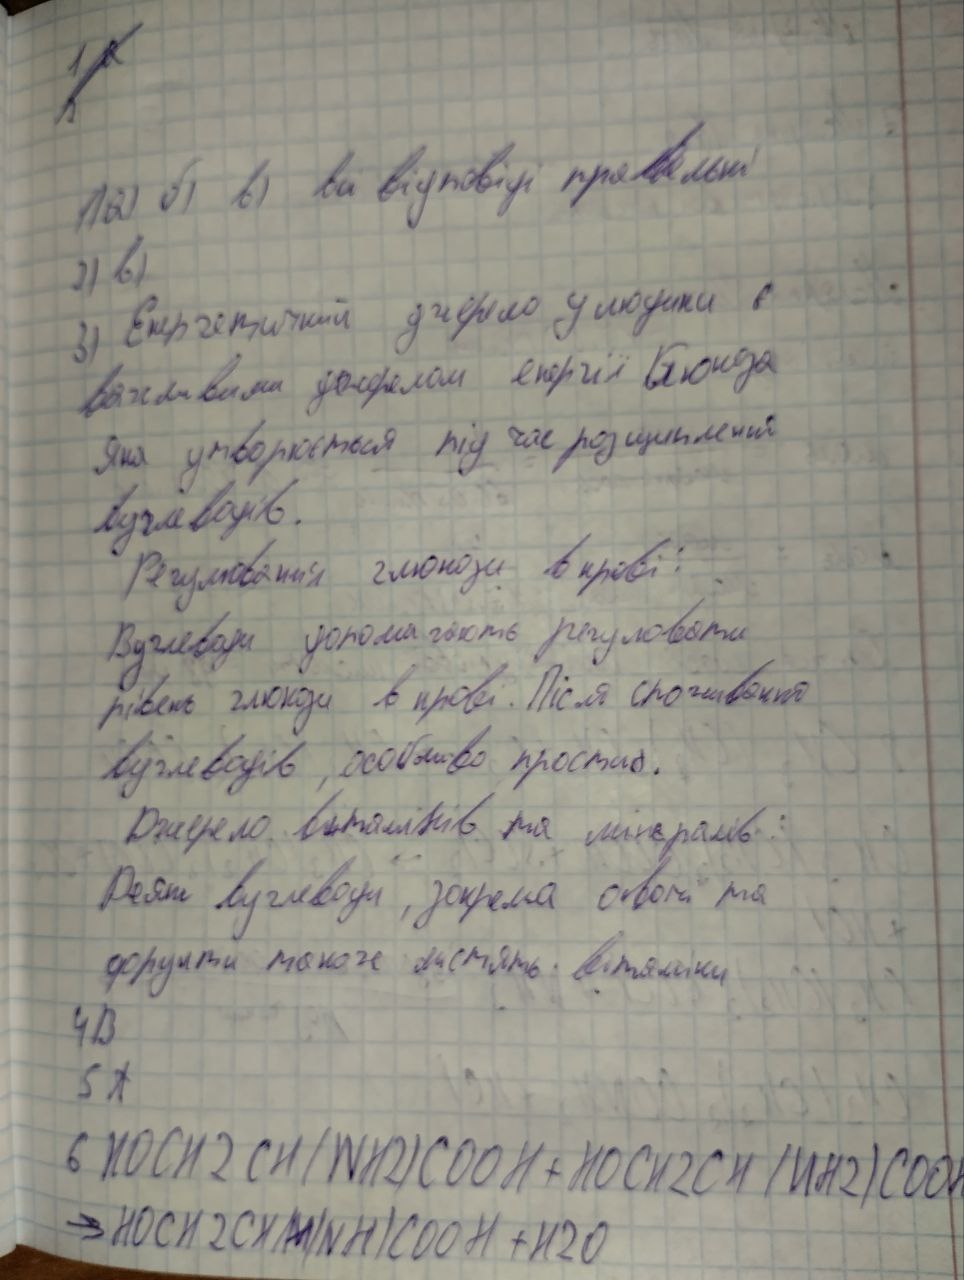 1)а) б) в) ви відповіді правельні
2) в)
3) Енергетичний джерело у людини є
важливими джерелом енергії Глюкоза
Яка утворюється під час розщиплення
вуглеводів.
Регулювання глюкози в крові:
Вуглеводи допомагають регуловати
рівень глюкози в крові. Після споживання
вуглеводів, особливо простих.
Джерело вітамінів та мінералів:
Деякі вуглеводи, зокрема овочі та
фрукти також містять вітаміни
4 В
5 А
6 HOCH2CH(NH2)COOH+HOCH2CH(NH2)COOH
→HOCH2CH(NH)COOH+H2O